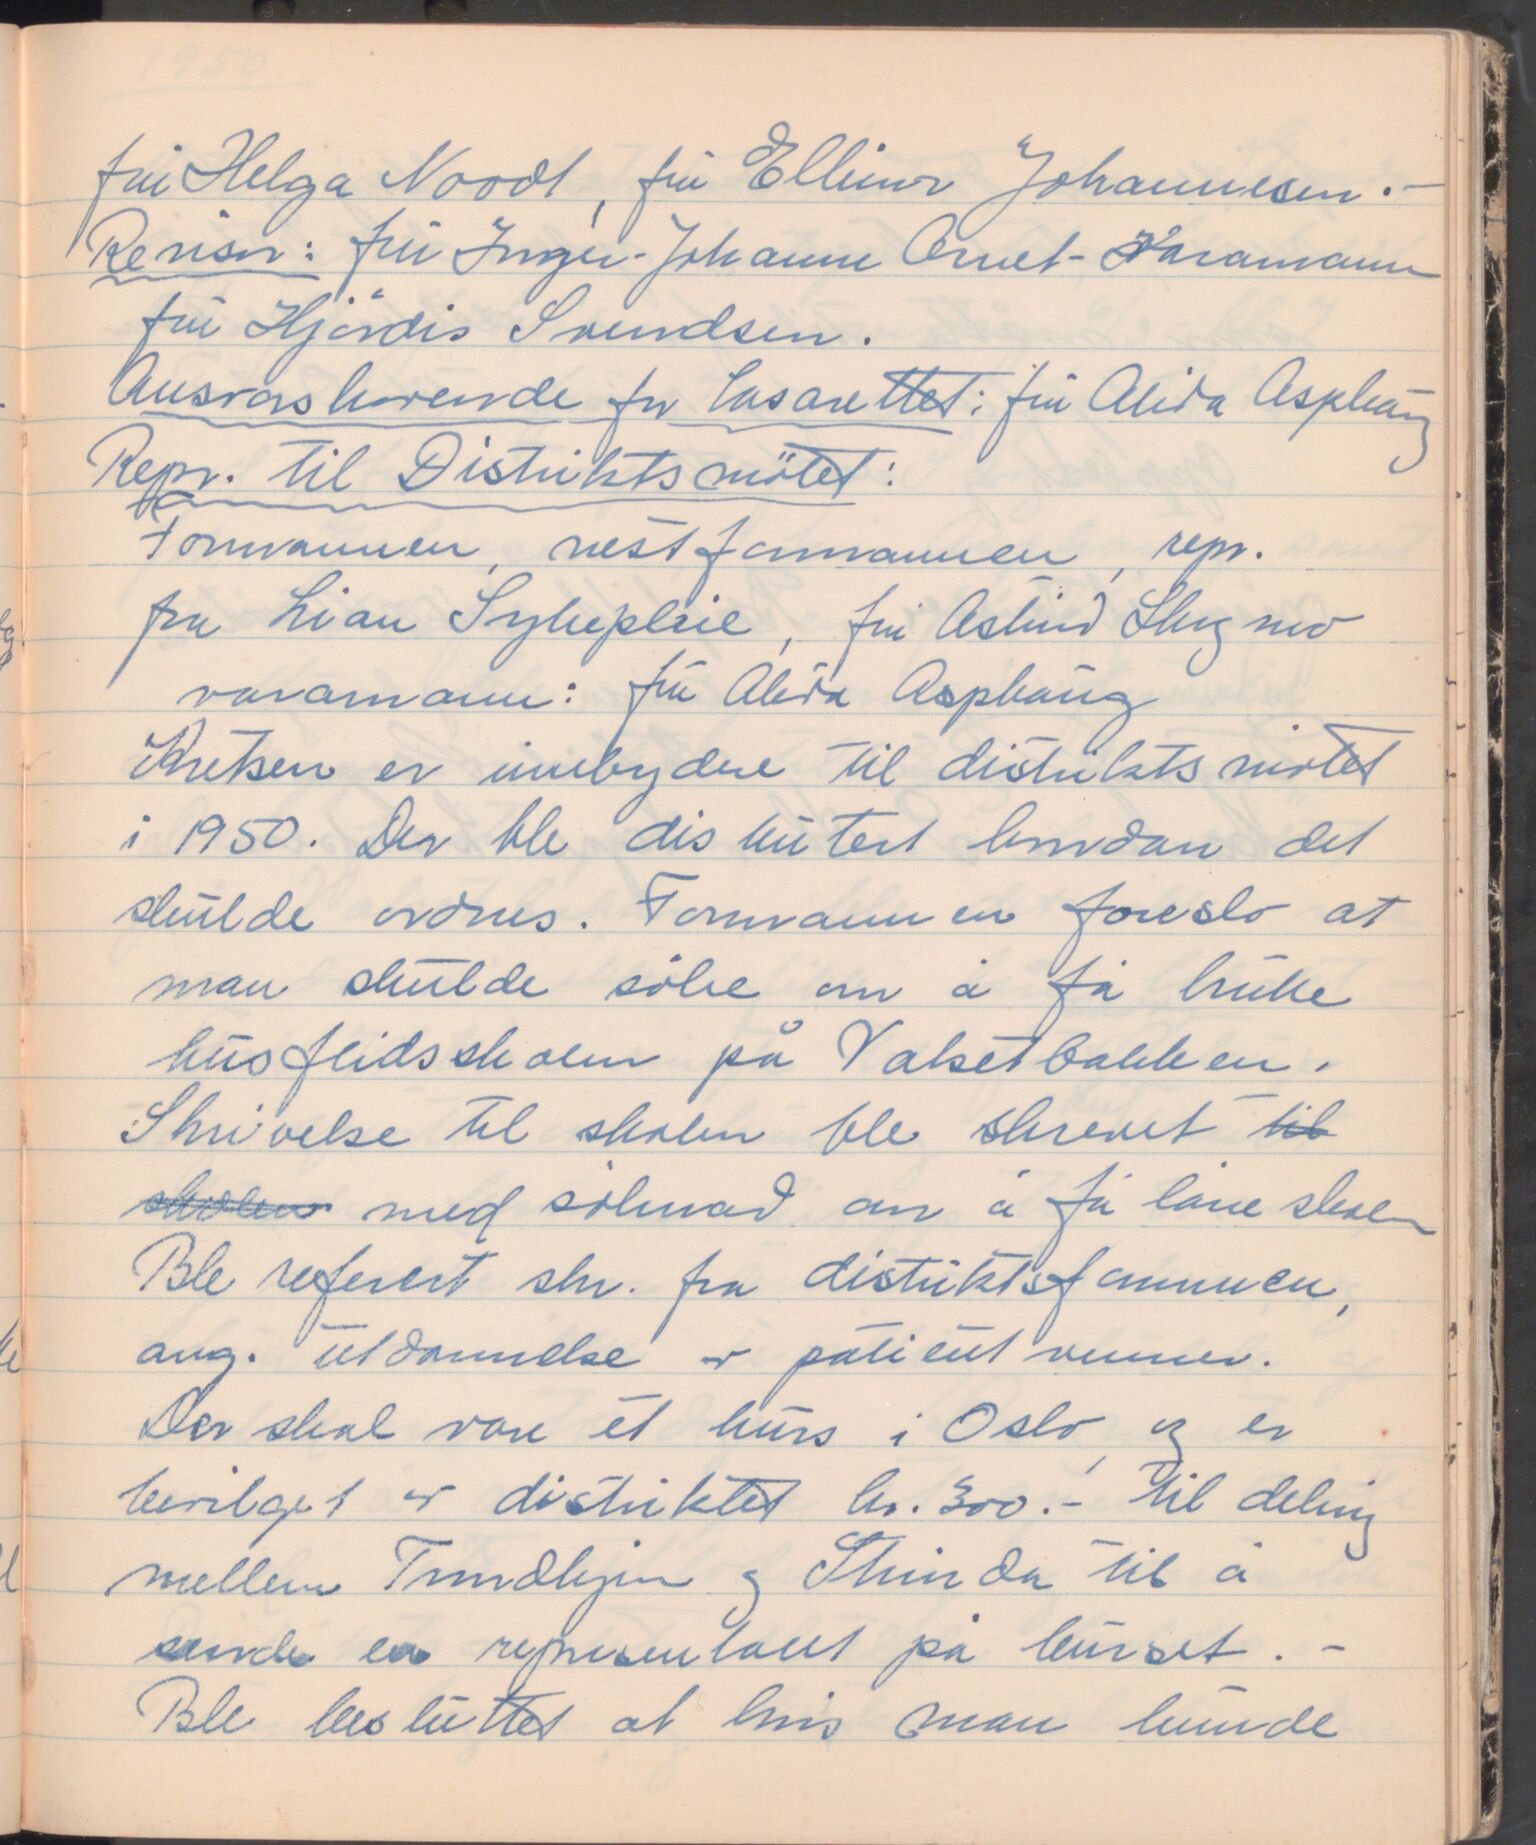 1950.
frü Helga Noodt, frü Ellinor Johannesen. -
Revisor: frü Inger-Johanne Arnet - Varamann
frü Hjördis Svendsen.
Ansvarshavende for Lasarettet: frü Alida Asphaüg
Repr. til Distriktsmötet:
Formannen, nestformannen, repr.
fra Lian Sykepleie, frü Astrid Skogmo
varamann: frü Alida Asphaüg
Kretsen er innbydere til distriktsmötet
i 1950. Der ble diskütert hvordan det
skülde ordnes. Formannen foreslo at
man skülde söke om å få brüke
hüsflidsskolen på Valsetbakken.
Skrivelse til skolen ble skrevet til
skolen med söknad om å få låne skolen
Ble referert skr. fra distriktsformannen,
ang. ütdannelse av patientvenner.
Der skal være et kürs i Oslo, og er
bevilget av distriktet kr. 300.- til deling
mellem Trondhjem og Strinda til å
sende en representant på kürset. -
Ble beslüttet at hvis man künde